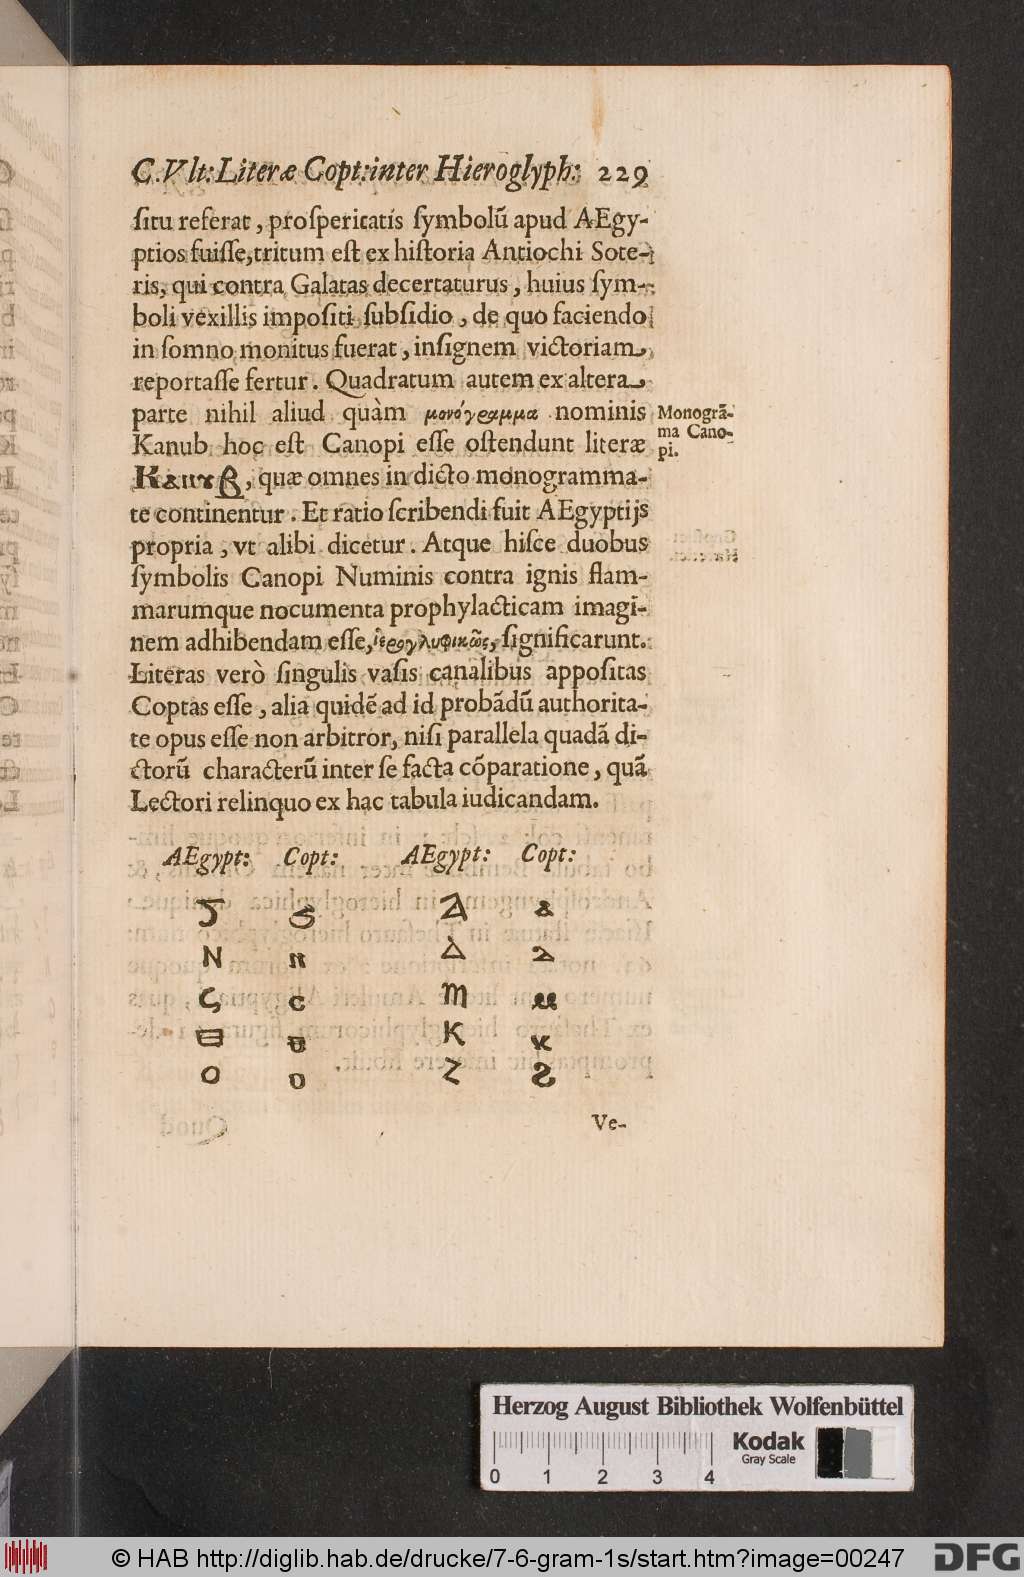 C. Vlt: Literæ Copt: inter Hieroglyph: 229
ſitu referat, proſperitatis ſymbolũ apud AEgy-
ptios fuiſſe, tritum eſt ex hiſtoria Antiochi Sote-
ris, qui contra Galatas decertaturus, huius ſym-
boli vexillis impoſiti ſubſidio, de quo faciendo
in ſomno monitus fuerat, inſignem victoriam
reportaſſe fertur. Quadratum autem ex altera
parte nihil aliud quàm μονόγραμμα nominis
Kanub hoc eſt Canopi eſſe oſtendunt literæ
Ⲕⲁⲛⲩⲃ, quæ omnes in dicto monogramma-
te continentur. Et ratio ſcribendi fuit AEgyptijs
propria, vt alibi dicetur. Atque hiſce duobus
ſymbolis Canopi Numinis contra ignis flam-
marumque nocumenta prophylacticam imagi-
nem adhibendam eſſe, ἱερογλυφικῶς, ſignificarunt.
Literas verò ſingulis vaſis canalibus appoſitas
Coptas eſſe, alia quidẽ ad id probãdũ authorita-
te opus eſſe non arbitror, niſi parallela quadã di-
ctorũ characterũ inter ſe facta cõparatione, quã
Lectori relinquo ex hac tabula iudicandam.
Monogrã-
ma Cano-
pi.
AEgypt: Copt: AEgypt: Copt:
N ⲛ Δ ⲇ
Ϛ ⲥ M ⲙ
K ⲕ
O ⲟ Z ⲍ
Ve-
Herzog August Bibliothek Wolfenbüttel
Kodak
Gray Scale
0 1 2 3 4
© HAB http://diglib.hab.de/drucke/7-6-gram-1s/start.htm?image=00247
DFG